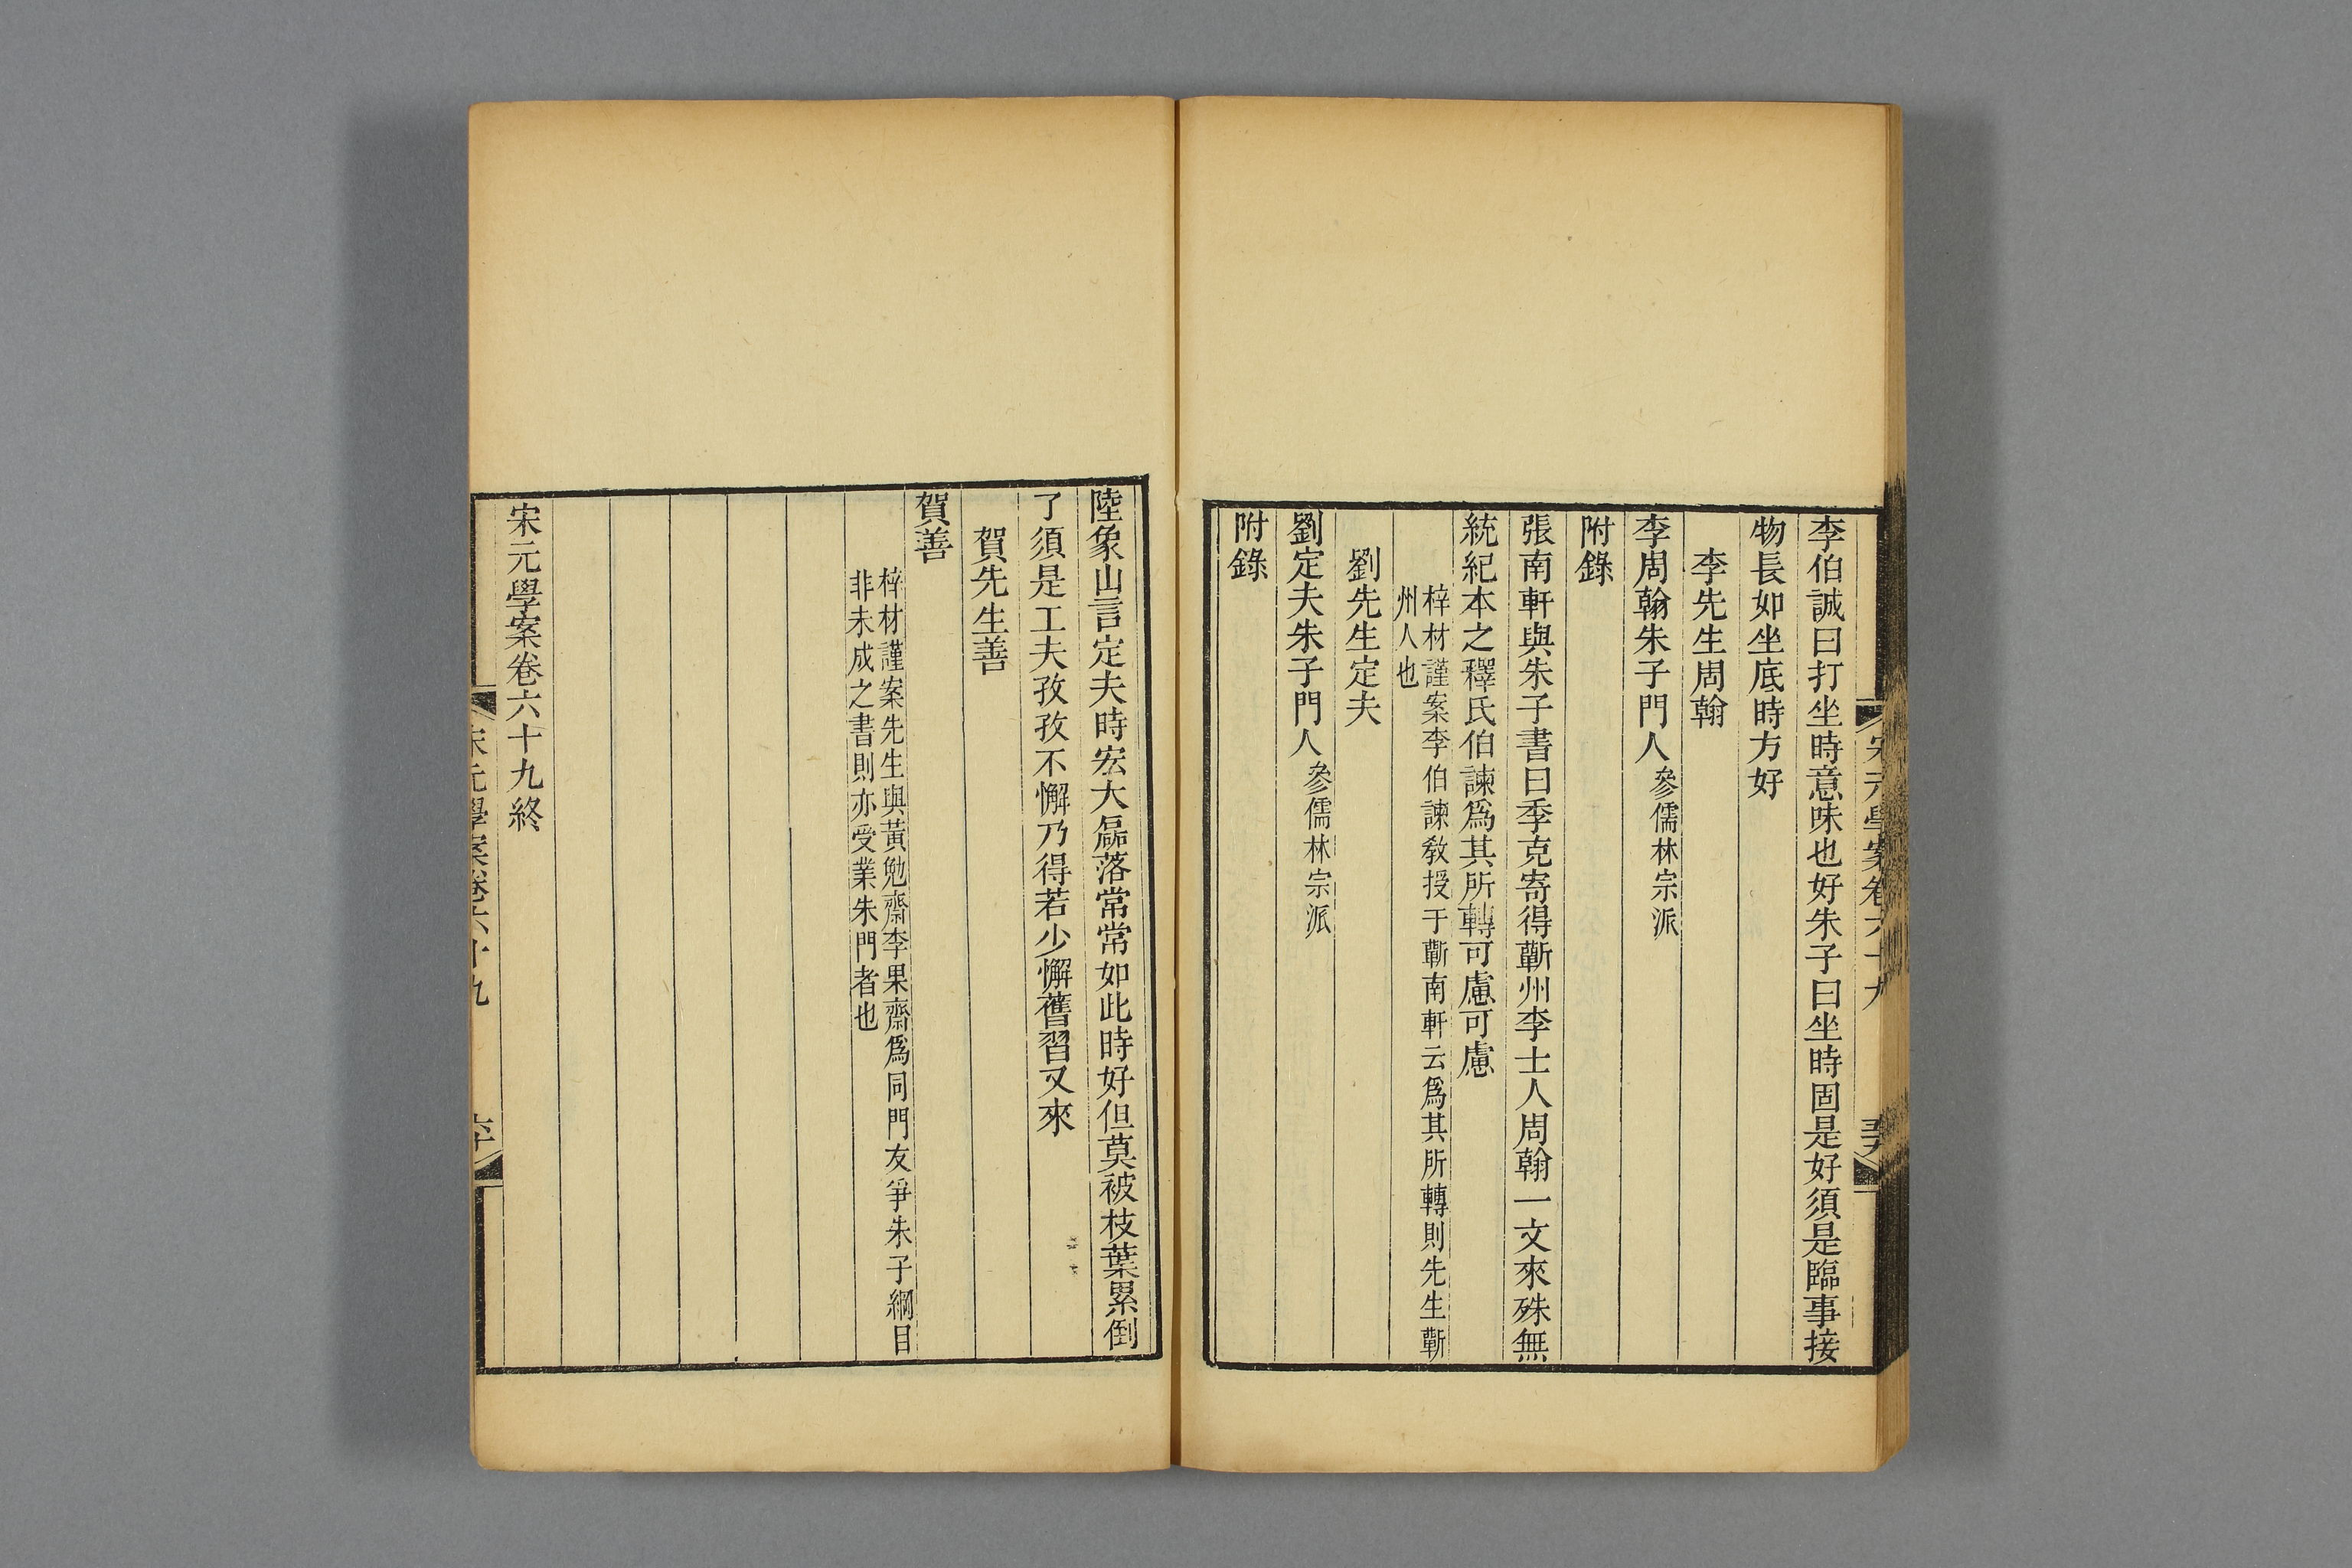 李伯誠曰打坐時意味也好朱子曰坐時固是好須是臨事接
物長如坐底時方好
李先生周翰
李周翰朱子門人參儒林宗派
附錄
張南軒與朱子書曰季克寄得蘄州李士人周翰一文來殊無
統紀本之釋氏伯諫爲其所轉可慮可慮
梓材謹案李伯諫敎授于蘄南軒云爲其所轉則先生蘄
州人也
劉先生定夫
劉定夫朱子門人參儒林宗派
附錄
陸象山言定夫時宏大磊落常常如此時好但莫被枝葉累倒
了須是工夫孜孜不懈乃得若少懈舊習又來
賀先生善
賀善
梓材謹案先生與黃勉齋李果齋爲同門友爭朱子綱目
非未成之書則亦受業朱門者也
宋元學案卷六十九終
宋元學案卷六十九